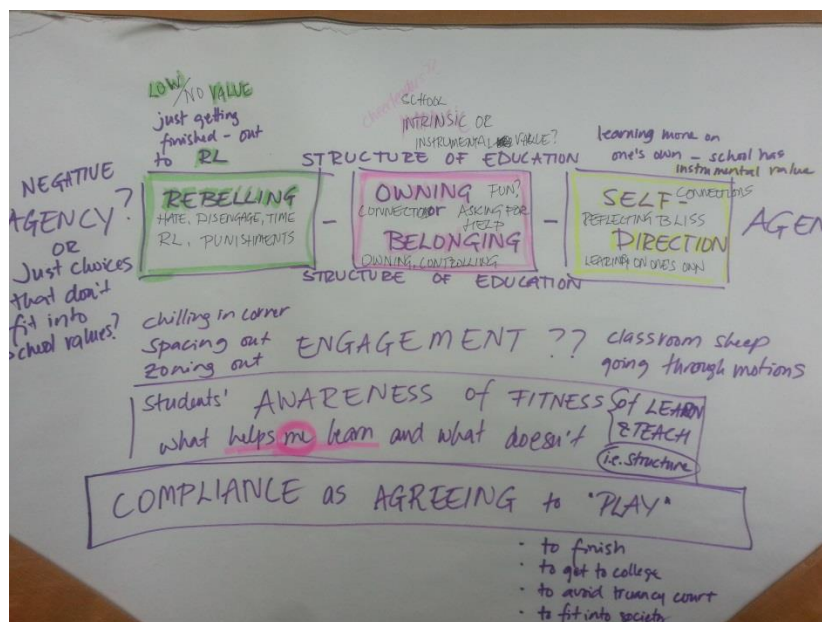 LOW/NO VALUE
just getting
finished - out
to RL
cheerleaders
SCHOOL
INTRINSIC OR
INSTRUMENTAL VALUE?
learning more on
one's own - school has
instrumental value
STRUCTURE OF EDUCATION
NEGATIVE
AGENCY?
OR
Just choices
that don't
fit into
school values?
REBELLING
HATE, DISENGAGE, TIME
RL, PUNISHMENTS
-
OWNING FUN?
CONNECTION or ASKING FOR
HELP
BELONGING
OWNING, CONTROLLING
-
SELF- CONNECTIONS
REFLECTING BLISS
DIRECTION
LEARNING ON ONE'S OWN
AGEN
STRUCTURE OF EDUCATION
chilling in corner
spacing out
zoning out
ENGAGEMENT ??
classroom sheep
going through motions
Students' AWARENESS of FITNESS of LEARN
& TEACH
what helps me learn and what doesn't
i.e. structure
COMPLIANCE as AGREEING to "PLAY"
· to finish
· to get to college
· to avoid truancy court
· to fit into society